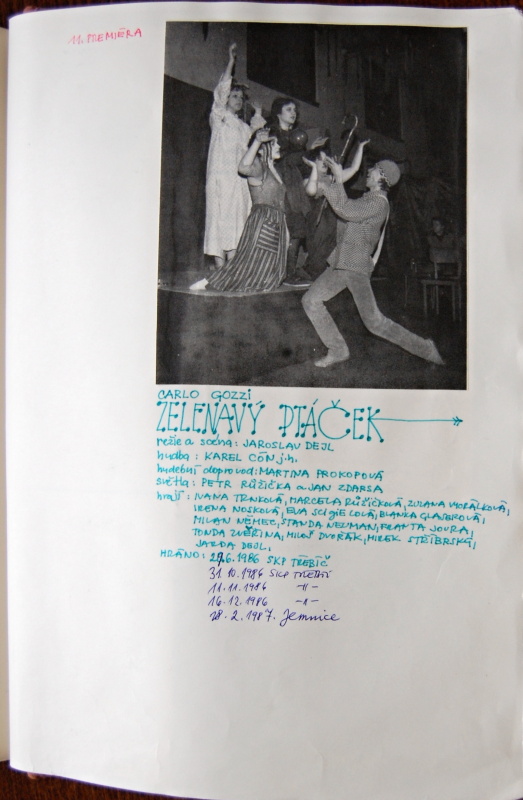 11. PREMIÉRA
CARLO GOZZI
ZELENAVÝ PTÁČEK
režie a scéna: JAROSLAV DEJL
hudba: KAREL CÓN j.h.
hudební doprovod: MARTINA PROKOPOVÁ
světla: PETR RŮŽIČKA a JAN ZDARSA
hrají: IVANA TRNKOVÁ, MARCELA RŮŽIČKOVÁ, ZUZANA VAVRÁLKOVÁ,
IRENA NOSKOVÁ, EVA LOLOVÁ, BLANKA GLASEROVÁ,
MILAN NĚMEC, STANDA NEUMAN, FRANTA JOURA,
TONDA ZVĚŘINA, MILOŠ DVOŘÁK, MIREK STŘÍBRSKÝ,
JARDA DEJL.
HRÁNO: 29.6.1986 SKP TŘEBÍČ
31.10.1986 SKP TŘEBÍČ
11.11.1986 -11-
16.12.1986 -11-
28.2.1987. Jemnice